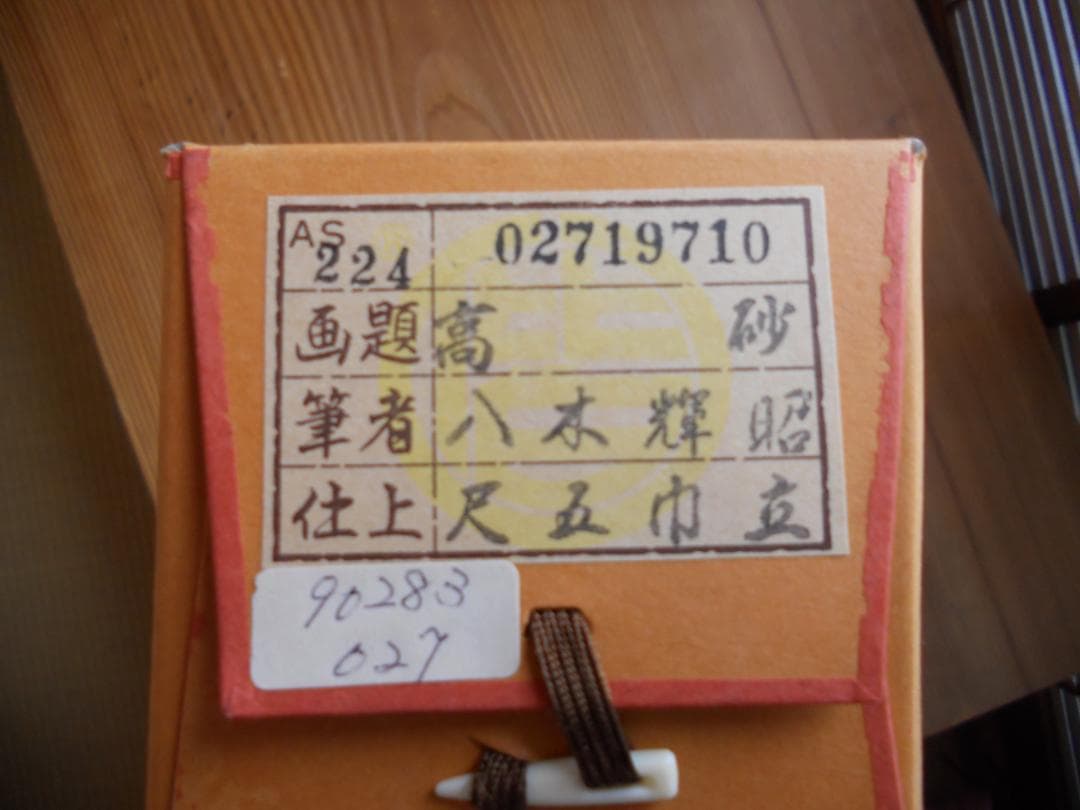 AS
224 02719710
画題 高 砂
筆者 八木輝昭
仕上 尺五巾立
90283
027